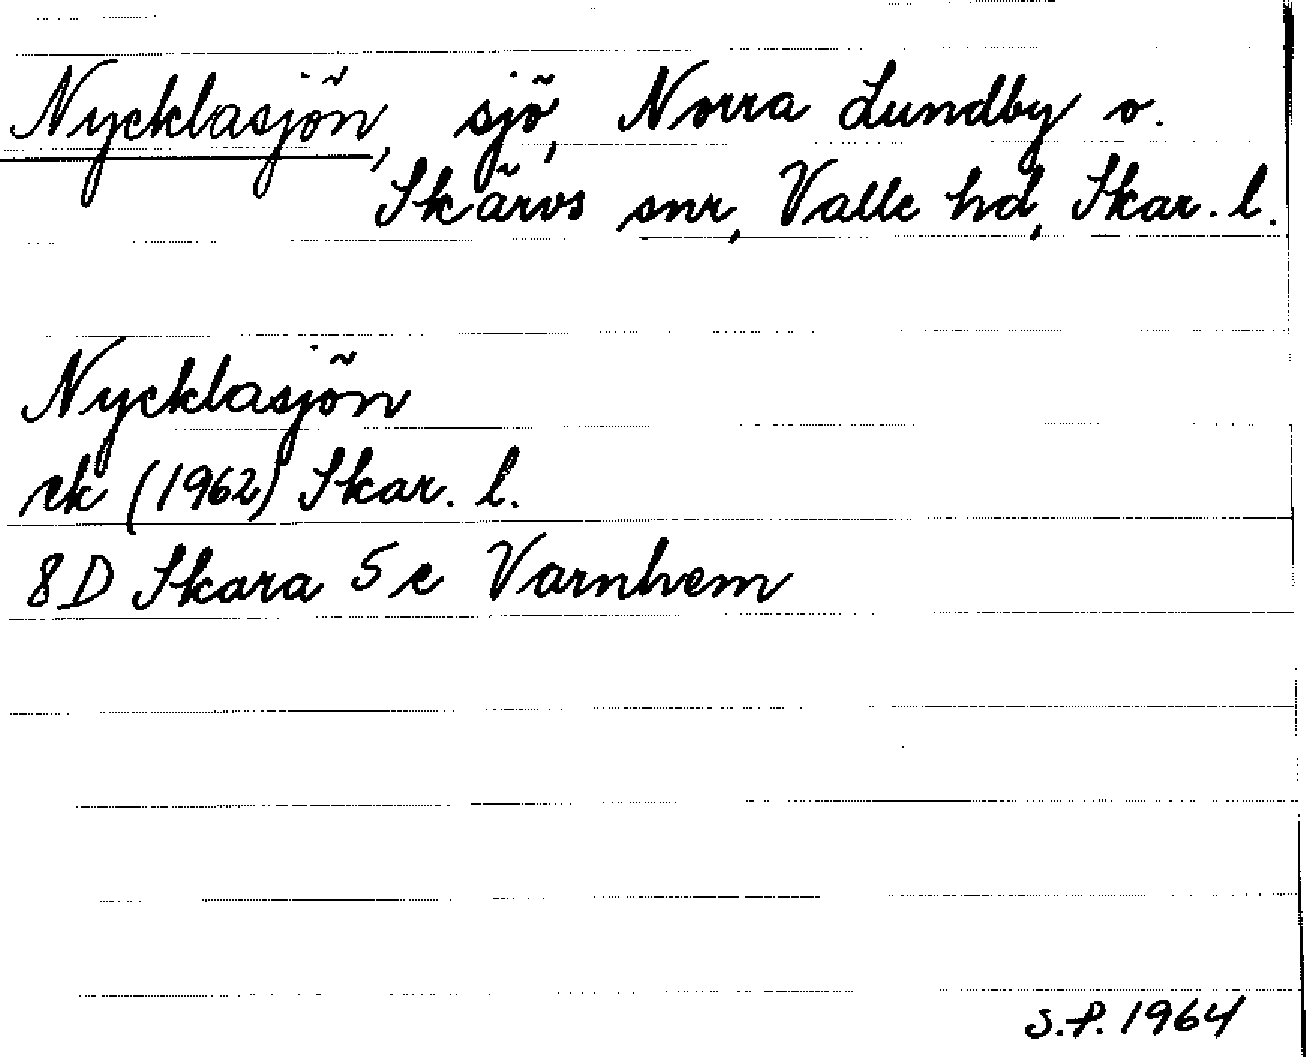 Nycklasjön, sjö, Norra Lundby o.
Skärvs snr, Valle hd, Skar. l.
Nycklasjön
ek (1962) Skar. l.
8D Skara 5e Varnhem
S.P. 1964